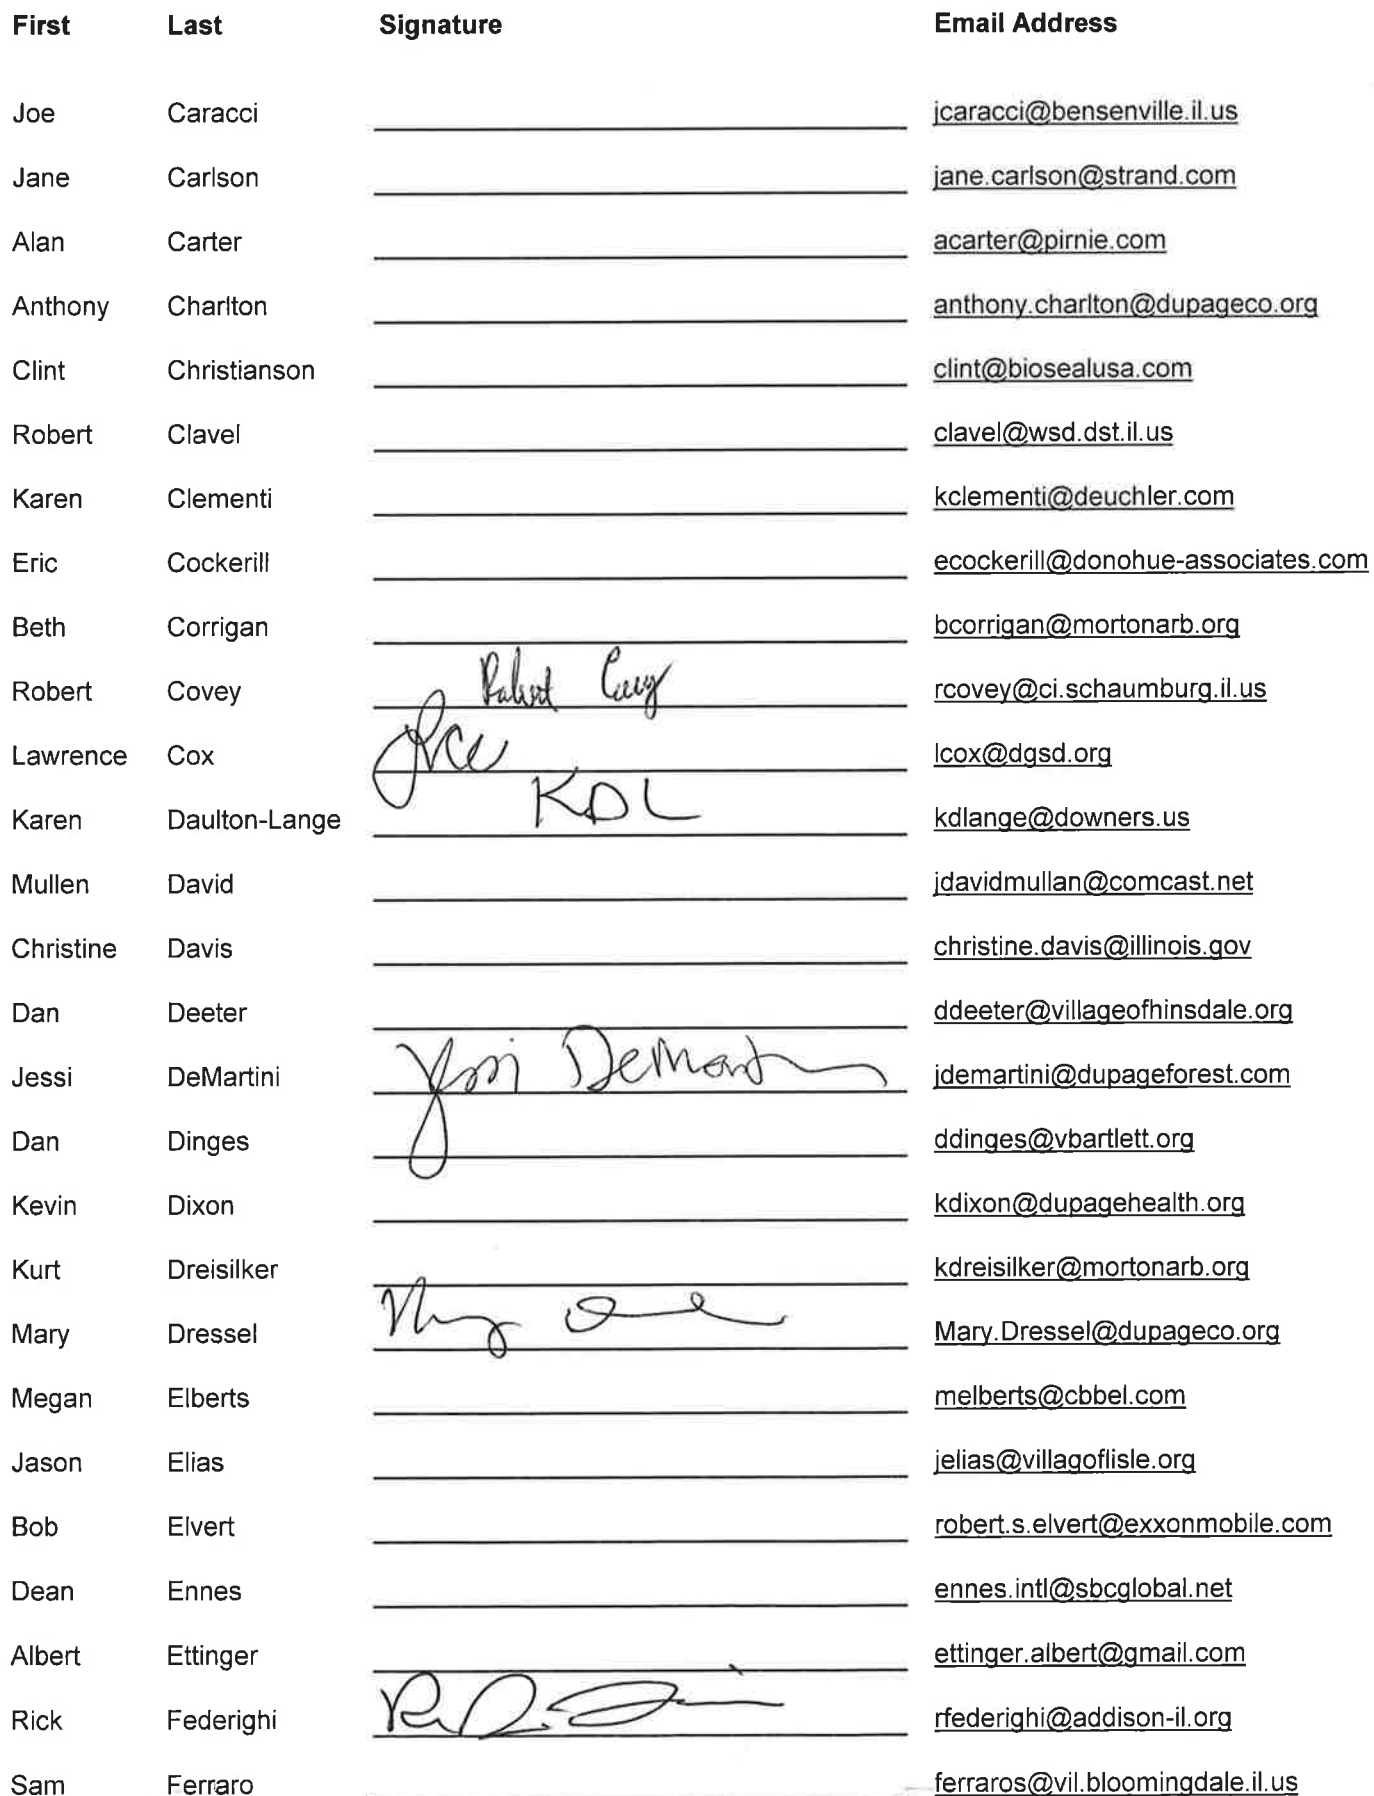 First Last Signature Email Address
Joe Caracci jcaracci@bensenville.il.us
Jane Carlson jane.carlson@strand.com
Alan Carter acarter@pirnie.com
Anthony Charlton anthony.charlton@dupageco.org
Clint Christianson clint@biosealusa.com
Robert Clavel clavel@wsd.dst.il.us
Karen Clementi kclementi@deuchler.com
Eric Cockerill ecockerill@donohue-associates.com
Beth Corrigan bcorrigan@mortonarb.org
Robert Covey rcovey@ci.schaumburg.il.us
Lawrence Cox lcox@dgsd.org
Karen Daulton-Lange KDL kdlange@downers.us
Mullen David jdavidmullan@comcast.net
Christine Davis christine.davis@illinois.gov
Dan Deeter ddeeter@villageofhinsdale.org
Jessi DeMartini jdemartini@dupageforest.com
Dan Dinges ddinges@vbartlett.org
Kevin Dixon kdixon@dupagehealth.org
Kurt Dreisilker kdreisilker@mortonarb.org
Mary Dressel Mary.Dressel@dupageco.org
Megan Elberts melberts@cbbel.com
Jason Elias jelias@villagoflisle.org
Bob Elvert robert.s.elvert@exxonmobile.com
Dean Ennes ennes.intl@sbcglobal.net
Albert Ettinger ettinger.albert@gmail.com
Rick Federighi rfederighi@addison-il.org
Sam Ferraro ferraros@vil.bloomingdale.il.us